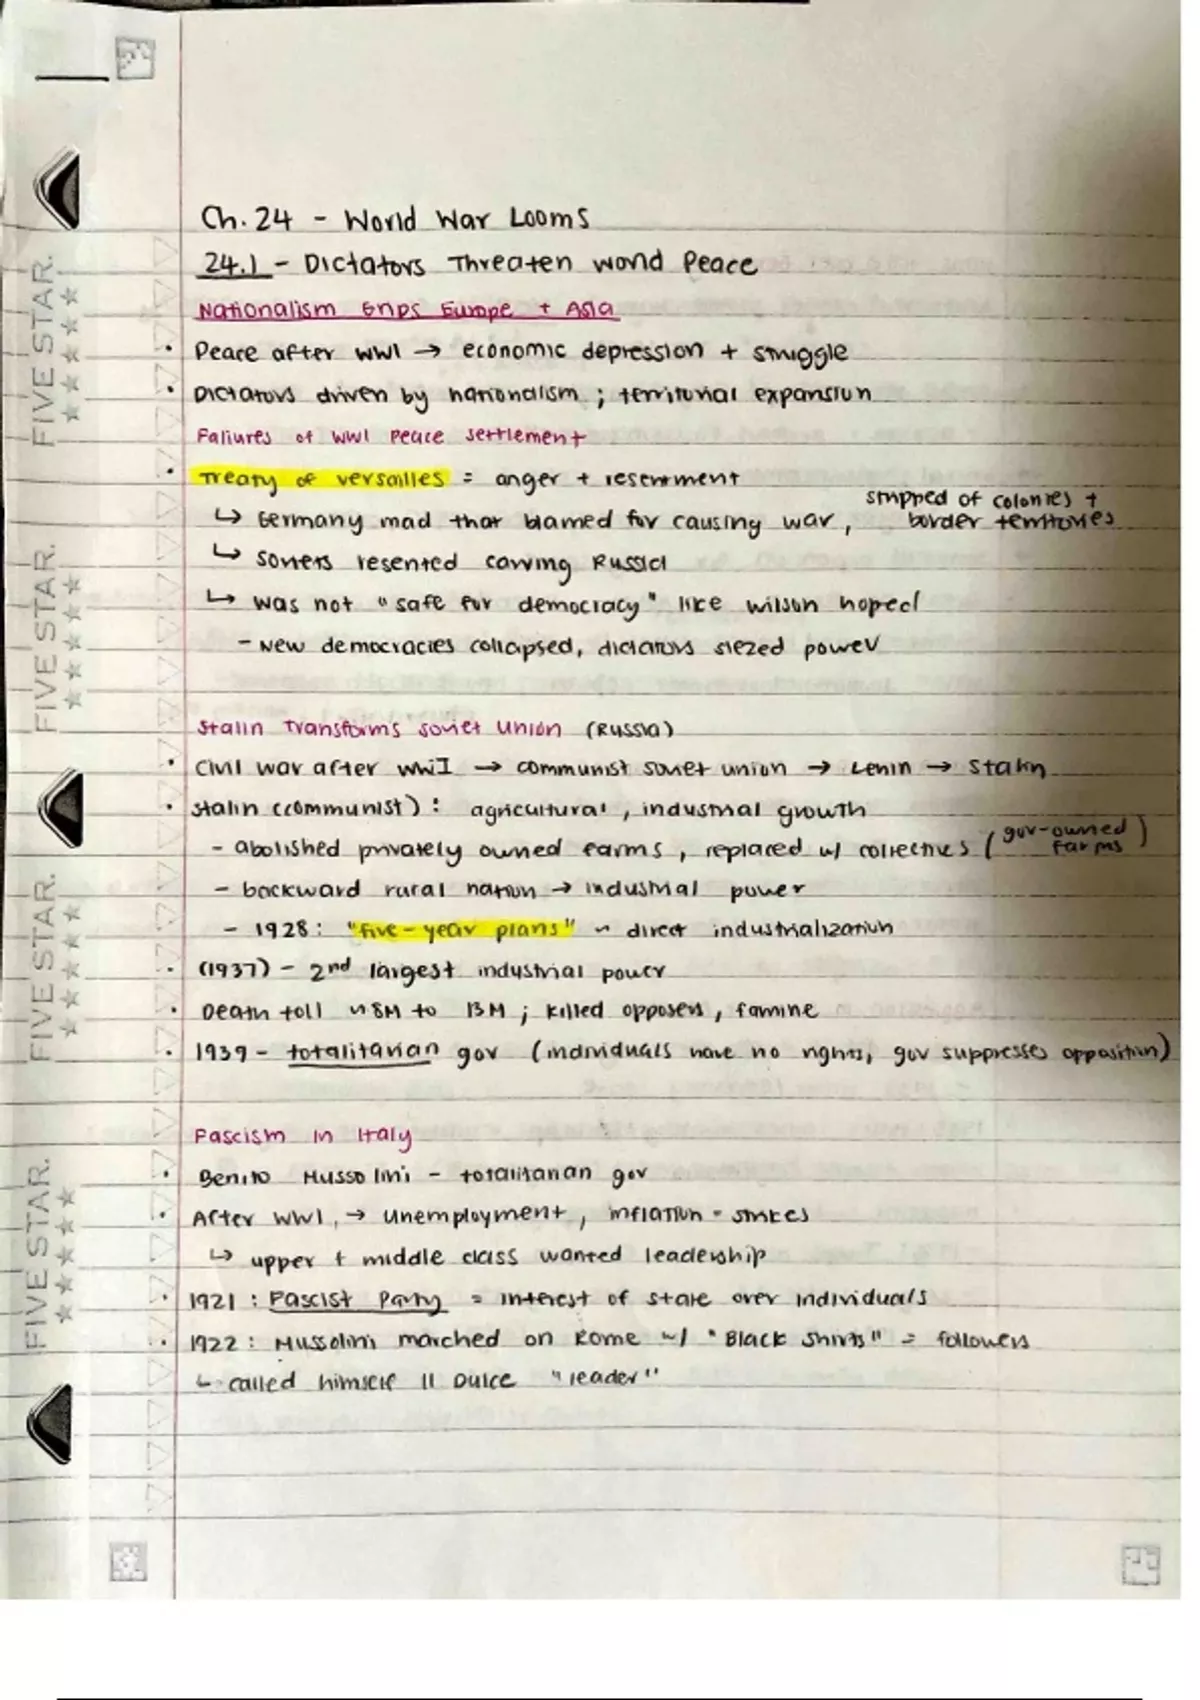 Ch. 24 - World War Looms
24.1 - Dictators Threaten World Peace
Nationalism Grips Europe + Asia
• Peace after WWI → economic depression + struggle
• Dictators driven by nationalism ; territorial expansion
Faliures of WWI Peace Settlement
• Treaty of Versailles = anger + resentment
↳ Germany mad that blamed for causing war, stripped of colonies + border territories
↳ Soviets resented carving Russia
↳ was not "safe for democracy" like Wilson hoped
- New democracies collapsed, dictators siezed power
Stalin Transforms Soviet Union (Russia)
• Civil war after WWI → communist Soviet union → Lenin → Stalin
• Stalin (communist) : agricultural, industrial growth
- abolished privately owned farms, replaced w/ collectives (gov-owned farms)
- backward rural nation → industrial power
- 1928: "five-year plans" ~ direct industrialization
• (1937) - 2nd largest industrial power
• Death toll ~8M to 13M ; killed opposers, famine
• 1939 - totalitarian gov (individuals have no rights, gov suppresses opposition)
Fascism in Italy
• Benito Mussolini - totalitarian gov
• After WWI, → unemployment, inflation - strikes
↳ upper + middle class wanted leadership
• 1921 : Fascist Party = interest of state over individuals
• 1922 : Mussolini marched on Rome w/ "Black shirts" = followers
↳ called himself Il Dulce "leader"
FIVE STAR.
FIVE STAR.
FIVE STAR.
FIVE STAR.